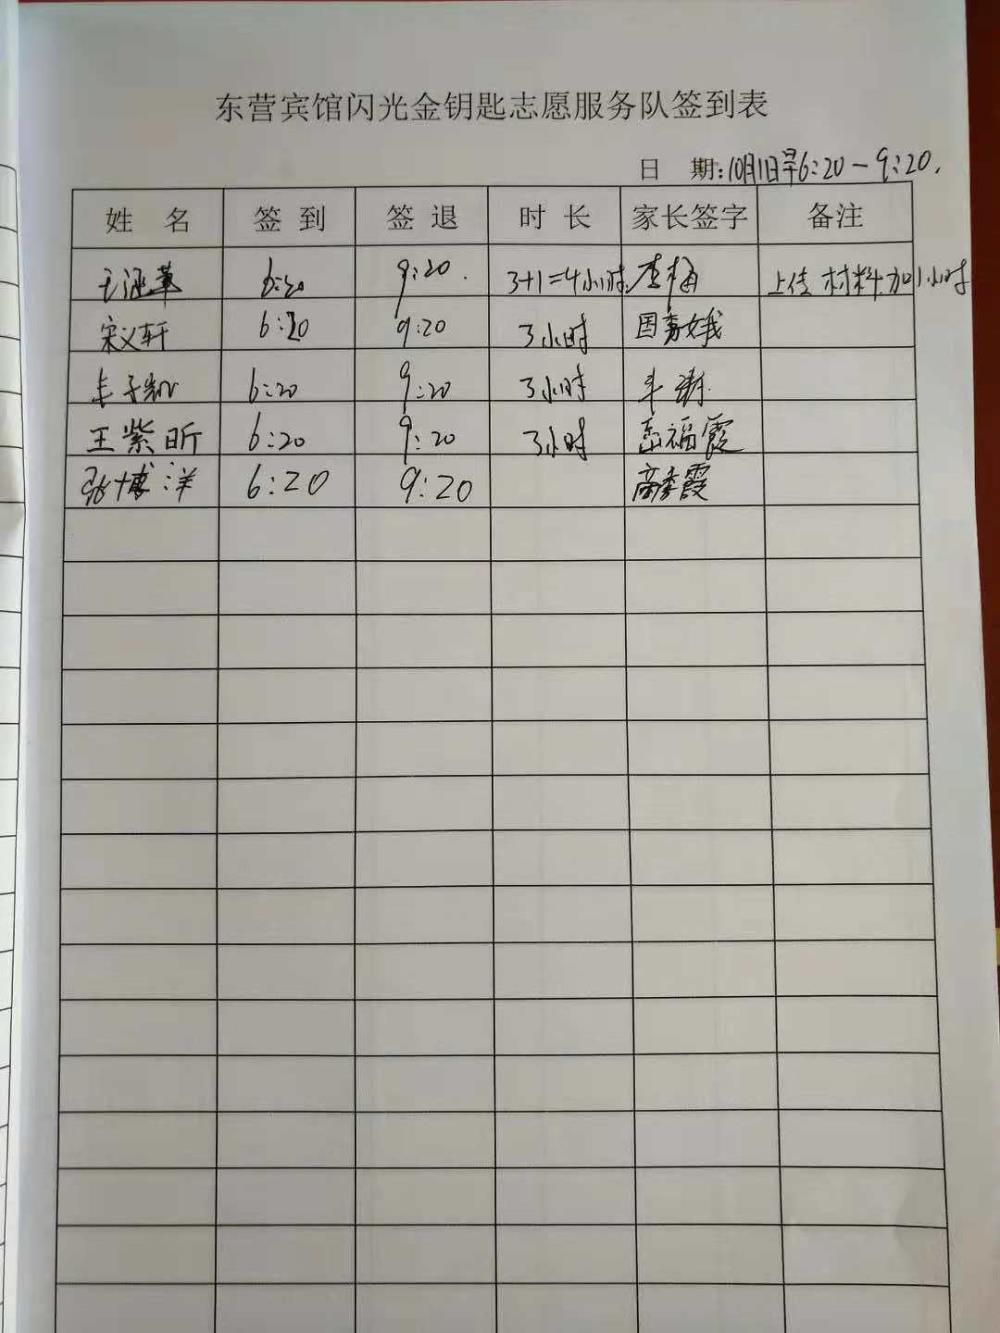 东营宾馆闪光金钥匙志愿服务队签到表
日 期:10月1日早6:20-9:20.
姓 名 签 到 签 退 时 长 家长签字 备注
王涵 6:20 9:20. 3+1=4小时. 李梅 上传材料加1小时
宋义轩 6:20 9:20 3小时 国娥
子 6:20 9:20 3小时
王紫昕 6:20 9:20 3小时 福霞
张博洋 6:20 9:20 高霞